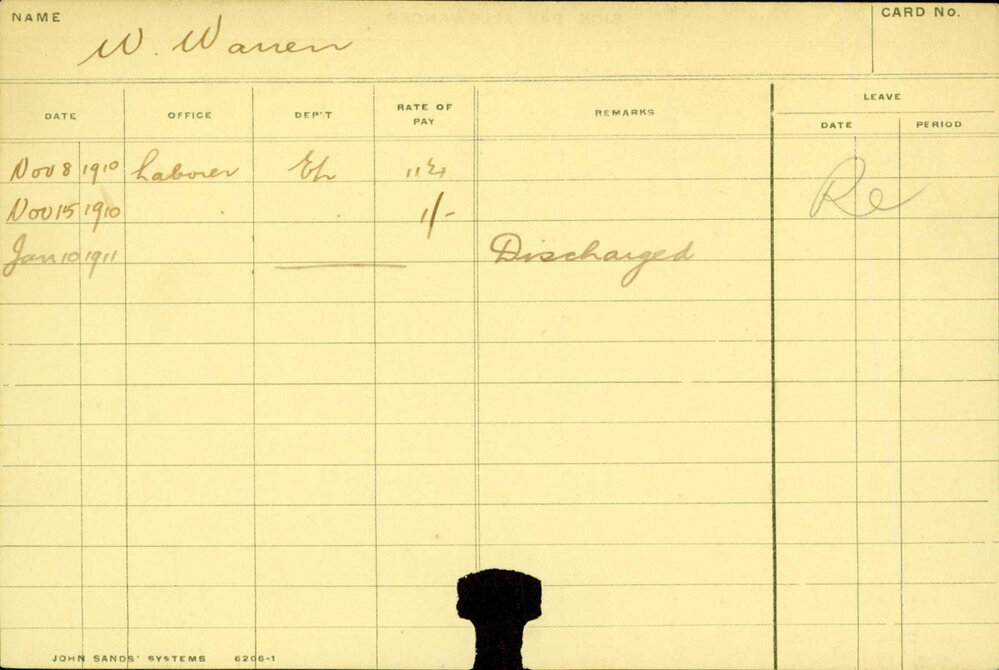 NAME
CARD No.
W. Warren
DATE OFFICE DEP'T RATE OF PAY REMARKS LEAVE
DATE PERIOD
Nov 8 1910 Laborer
Nov 15 1910 1/-
Jan 10 1911 Discharged
Re
JOHN SANDS' SYSTEMS 6206-1